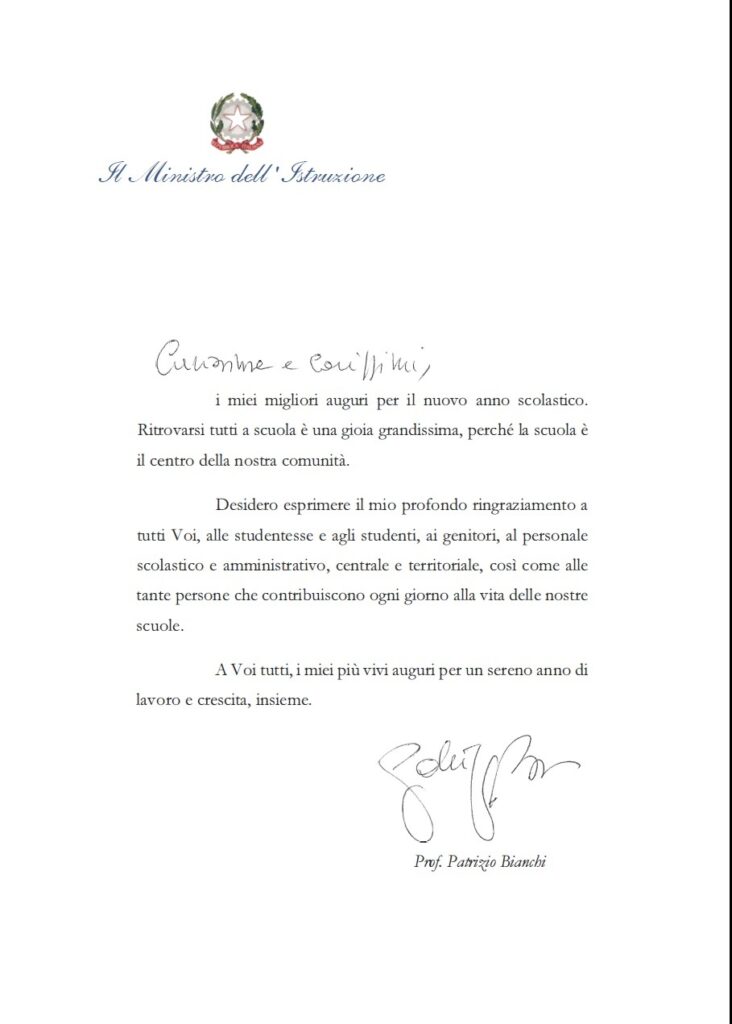 Il Ministro dell'Istruzione
Carissime e Carissimi,
i miei migliori auguri per il nuovo anno scolastico.
Ritrovarsi tutti a scuola è una gioia grandissima, perché la scuola è
il centro della nostra comunità.
Desidero esprimere il mio profondo ringraziamento a
tutti Voi, alle studentesse e agli studenti, ai genitori, al personale
scolastico e amministrativo, centrale e territoriale, così come alle
tante persone che contribuiscono ogni giorno alla vita delle nostre
scuole.
A Voi tutti, i miei più vivi auguri per un sereno anno di
lavoro e crescita, insieme.
Prof. Patrizio Bianchi